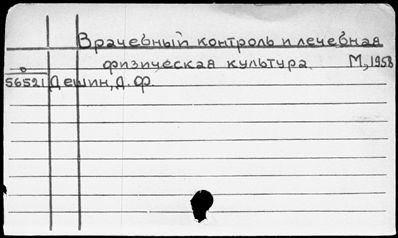 Врачебный контроль и лечебная
физическая культура. М, 1958
56521 Дешин, Д. Ф.